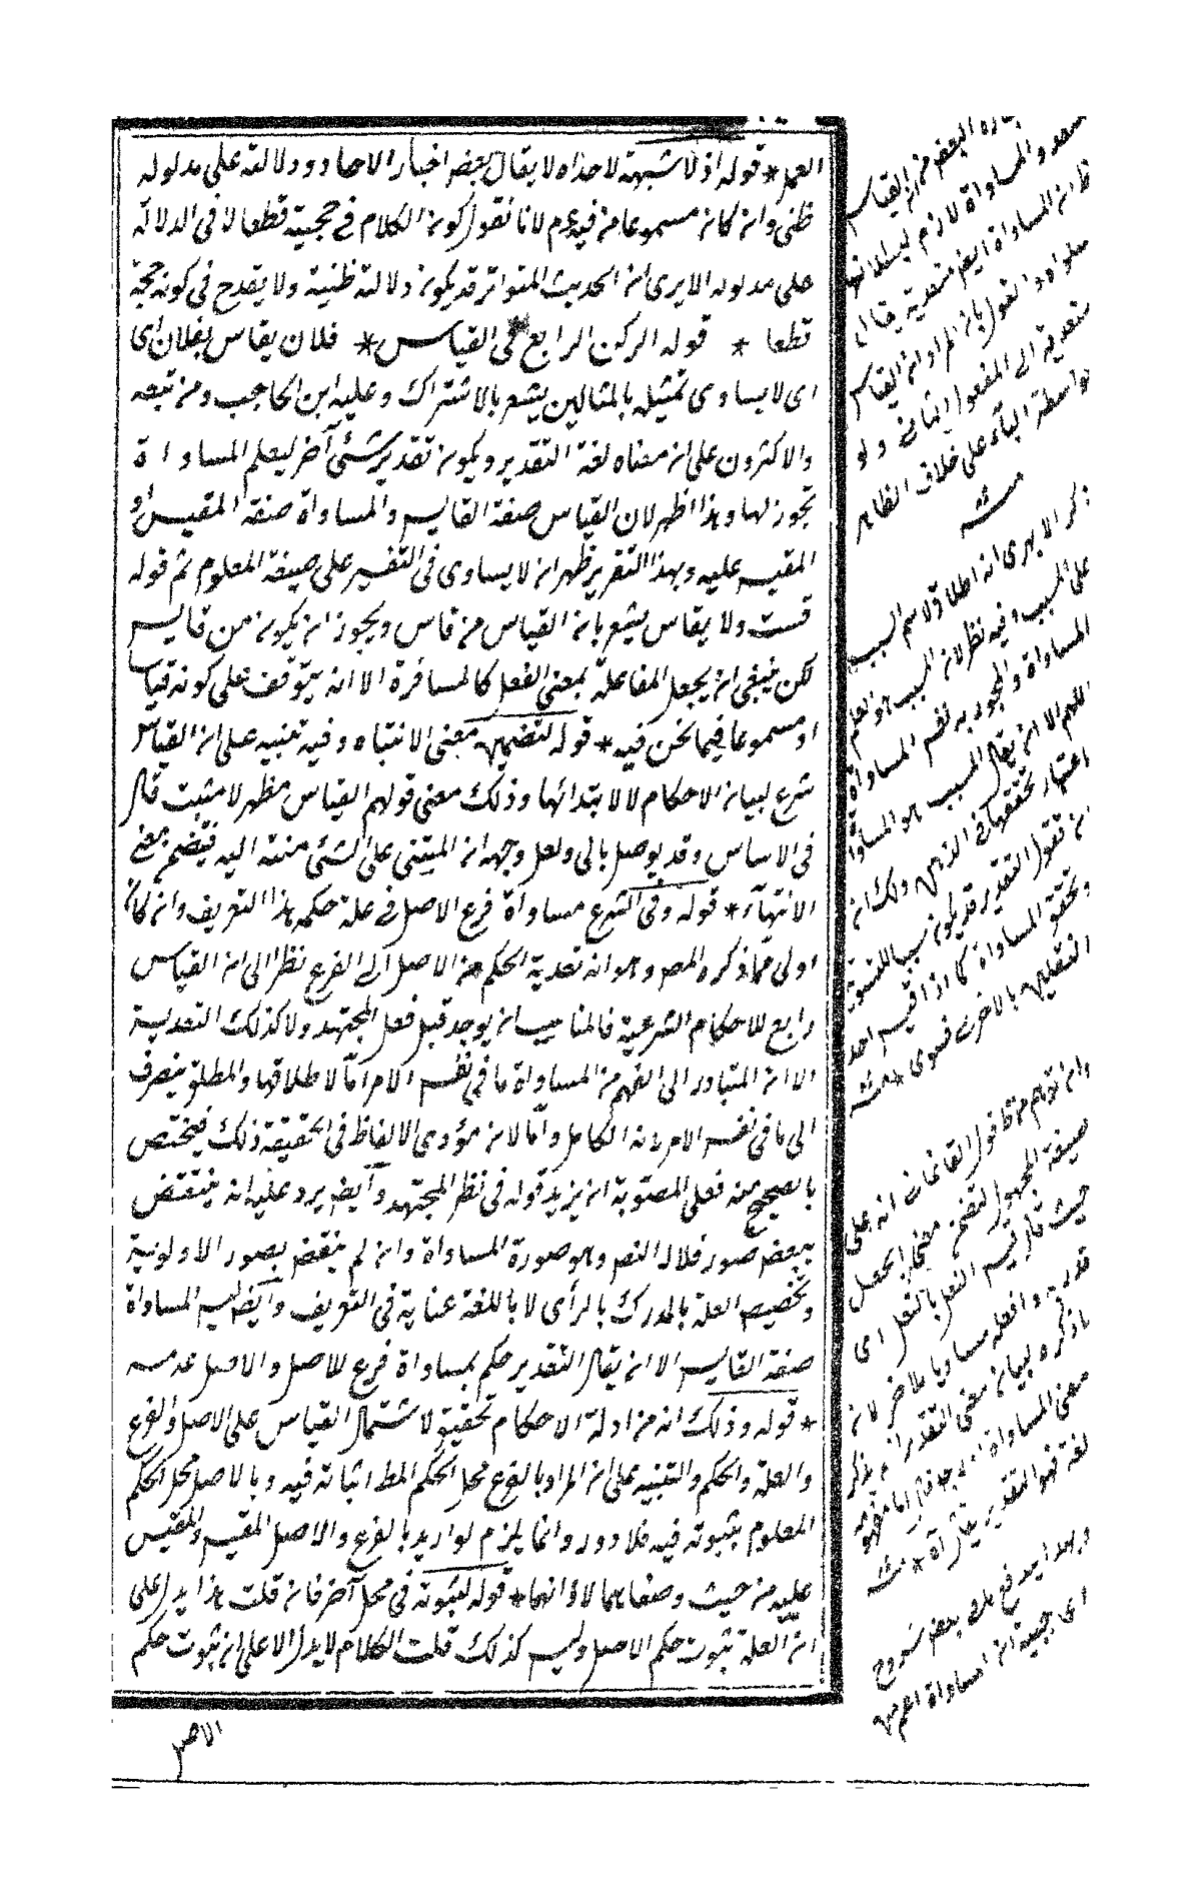 العمل * قوله اذ لا شبهة لاحد اه لا يقال بعض اخبار الاحاد ودلالته على مدلوله
ظنى وان كان مسموعا من فيه عم لانا نقول كون الكلام فى حجيته قطعا لا فى الدلالة
على مدلوله الا يرى ان الحديث المتواتر قد يكون دلالته ظنية ولا يقدح فى كونه حجة
قطعا * قوله الركن الرابع فى القياس * فلان يقاس بفلان اى
اى لا يساوى تمثيله بالمثالين يشعر بالاشتراك وعليه ابن الحاجب ومن تبعه
والاكثرون على ان معناه لغة التقدير ويكون تقدير شئ آخر ليعلم المساواة
تجوز لها وهذا اظهر لان القياس صفة القايس والمساواة صفة المقيس او
المقيس عليه وبهذا التقرير ظهر ان لا يساوى فى التفسير على صيغة المعلوم ثم قوله
قست ولا يقاس يشعر بان القياس من قاس ويجوز ان يكون من قايس
لكن ينبغى ان يجعل المفاعلة بمعنى الفعل كالمسافرة الا انه يتوقف على كونه قياسا
او مسموعا فيما نحن فيه * قوله لتضمين معنى الابتناء وفيه تنبيه على ان القياس
شرع لبيان الاحكام لا لابتدائها وذلك معنى قولهم القياس مظهر لا مثبت قال
فى الاساس وقد يوصل بالى ولعل وجهه ان المبتنى على الشئ منته اليه فيتضمن معنى
الانتهاء * قوله وفى الشرع مساواة فرع الاصل فى علة حكمه هذا التعريف وان كان
اولى مما ذكره المص وهو انه تعدية الحكم من الاصل الى الفرع نظرا الى ان القياس
رابع للاحكام الشرعية فالمناسب ان يوجد قبل فعل المجتهد ولا كذلك التعدية
الا ان المتبادر الى الفهم من المساواة ما فى نفس الامر اما لاطلاقها والمطلق ينصرف
الى ما فى نفس الامر لانه الكامل واما لان مؤدى الالفاظ فى الحقيقة ذلك فيختص
بالصحيح منه فعلى المصوبة ان يزيد قوله فى نظر المجتهد وايضا يرد عليه انه ينتقض
ببعض صور دلالة النص وهو صورة المساواة وان لم ينقض بصور الاولوية
وتخصيص العلة بالمدرك بالرأى لا باللغة عناية فى التعريف وايضا ليس المساواة
صفة القايس الا ان يقال التقدير حكم بمساواة فرع للاصل والاصل عدمه
* قوله وذلك انه من ادلة الاحكام تحقيق لاشتمال القياس على الاصل والفرع
والعلة والحكم والتنبيه على ان المراد بالفرع محل الحكم المط اثباته فيه وبالاصل محل الحكم
المعلوم بثبوته فيه فلا دور وانما يلزم لو اريد بالفرع والاصل المقيس والمقيس
عليه من حيث وصفاهما لا ذاتهما * قوله لثبوته فى محل آخر فان قلت هذا يدل على
ان العلة ثبوت حكم الاصل وليس كذلك قلت الكلام لا يدل الا على ان ثبوت حكم
الاصل
البعض من ان القياس
والمساواة لازم
ان المساواة ايضا متعدية يقال
والقول بان المراد ان القياس
متعديته الى المفعول الثانى ولو
بواسطة الباء على خلاف الظاهر
منه
ذكر الابهرى انه اطلاق لاسم السبب
على المسبب وفيه نظر لان المسبب هو العلم
المساواة والمجوز به نفس المساواة
اللهم الا ان يقال المسبب هو المساواة
اعتبار تحققها فى الذهن ولك ان
ان تقول التقدير قد يكون سببا
وتحقق المساواة كما اذا قيس احد
النعلين بالاخرى فسوى * منه
صيغة المجهول لتضمن معنى الجعل
حيث قال قيس النعل بالنعل اى
ما ذكره لبيان معنى التقدير
لغة فهو التقدير